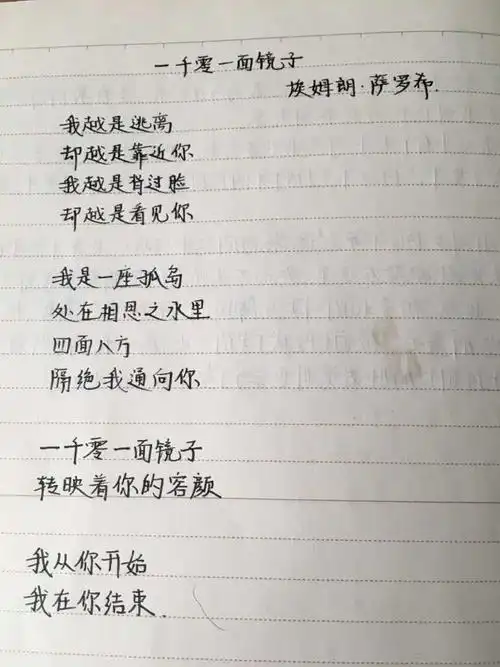 一千零一面镜子
埃姆朗·萨罗希.
我越是逃离
却越是靠近你
我越是背过脸
却越是看见你
我是一座孤岛
处在相思之水里
四面八方
隔绝我通向你
一千零一面镜子
转映着你的容颜
我从你开始
我在你结束.